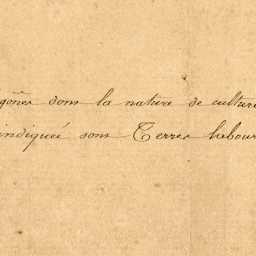 dont la nature de culture
indiqué sous Terres labour